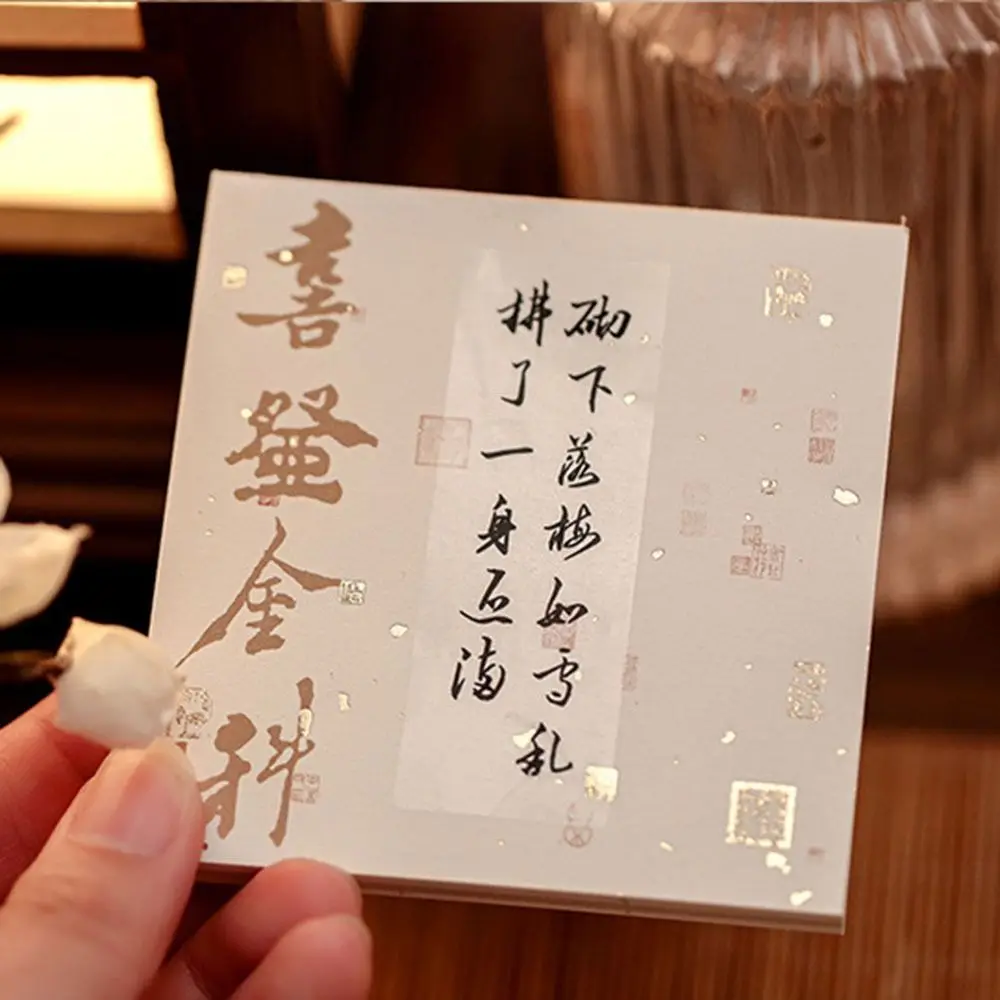 砌下落梅如雪乱
拂了一身还满
喜登金科